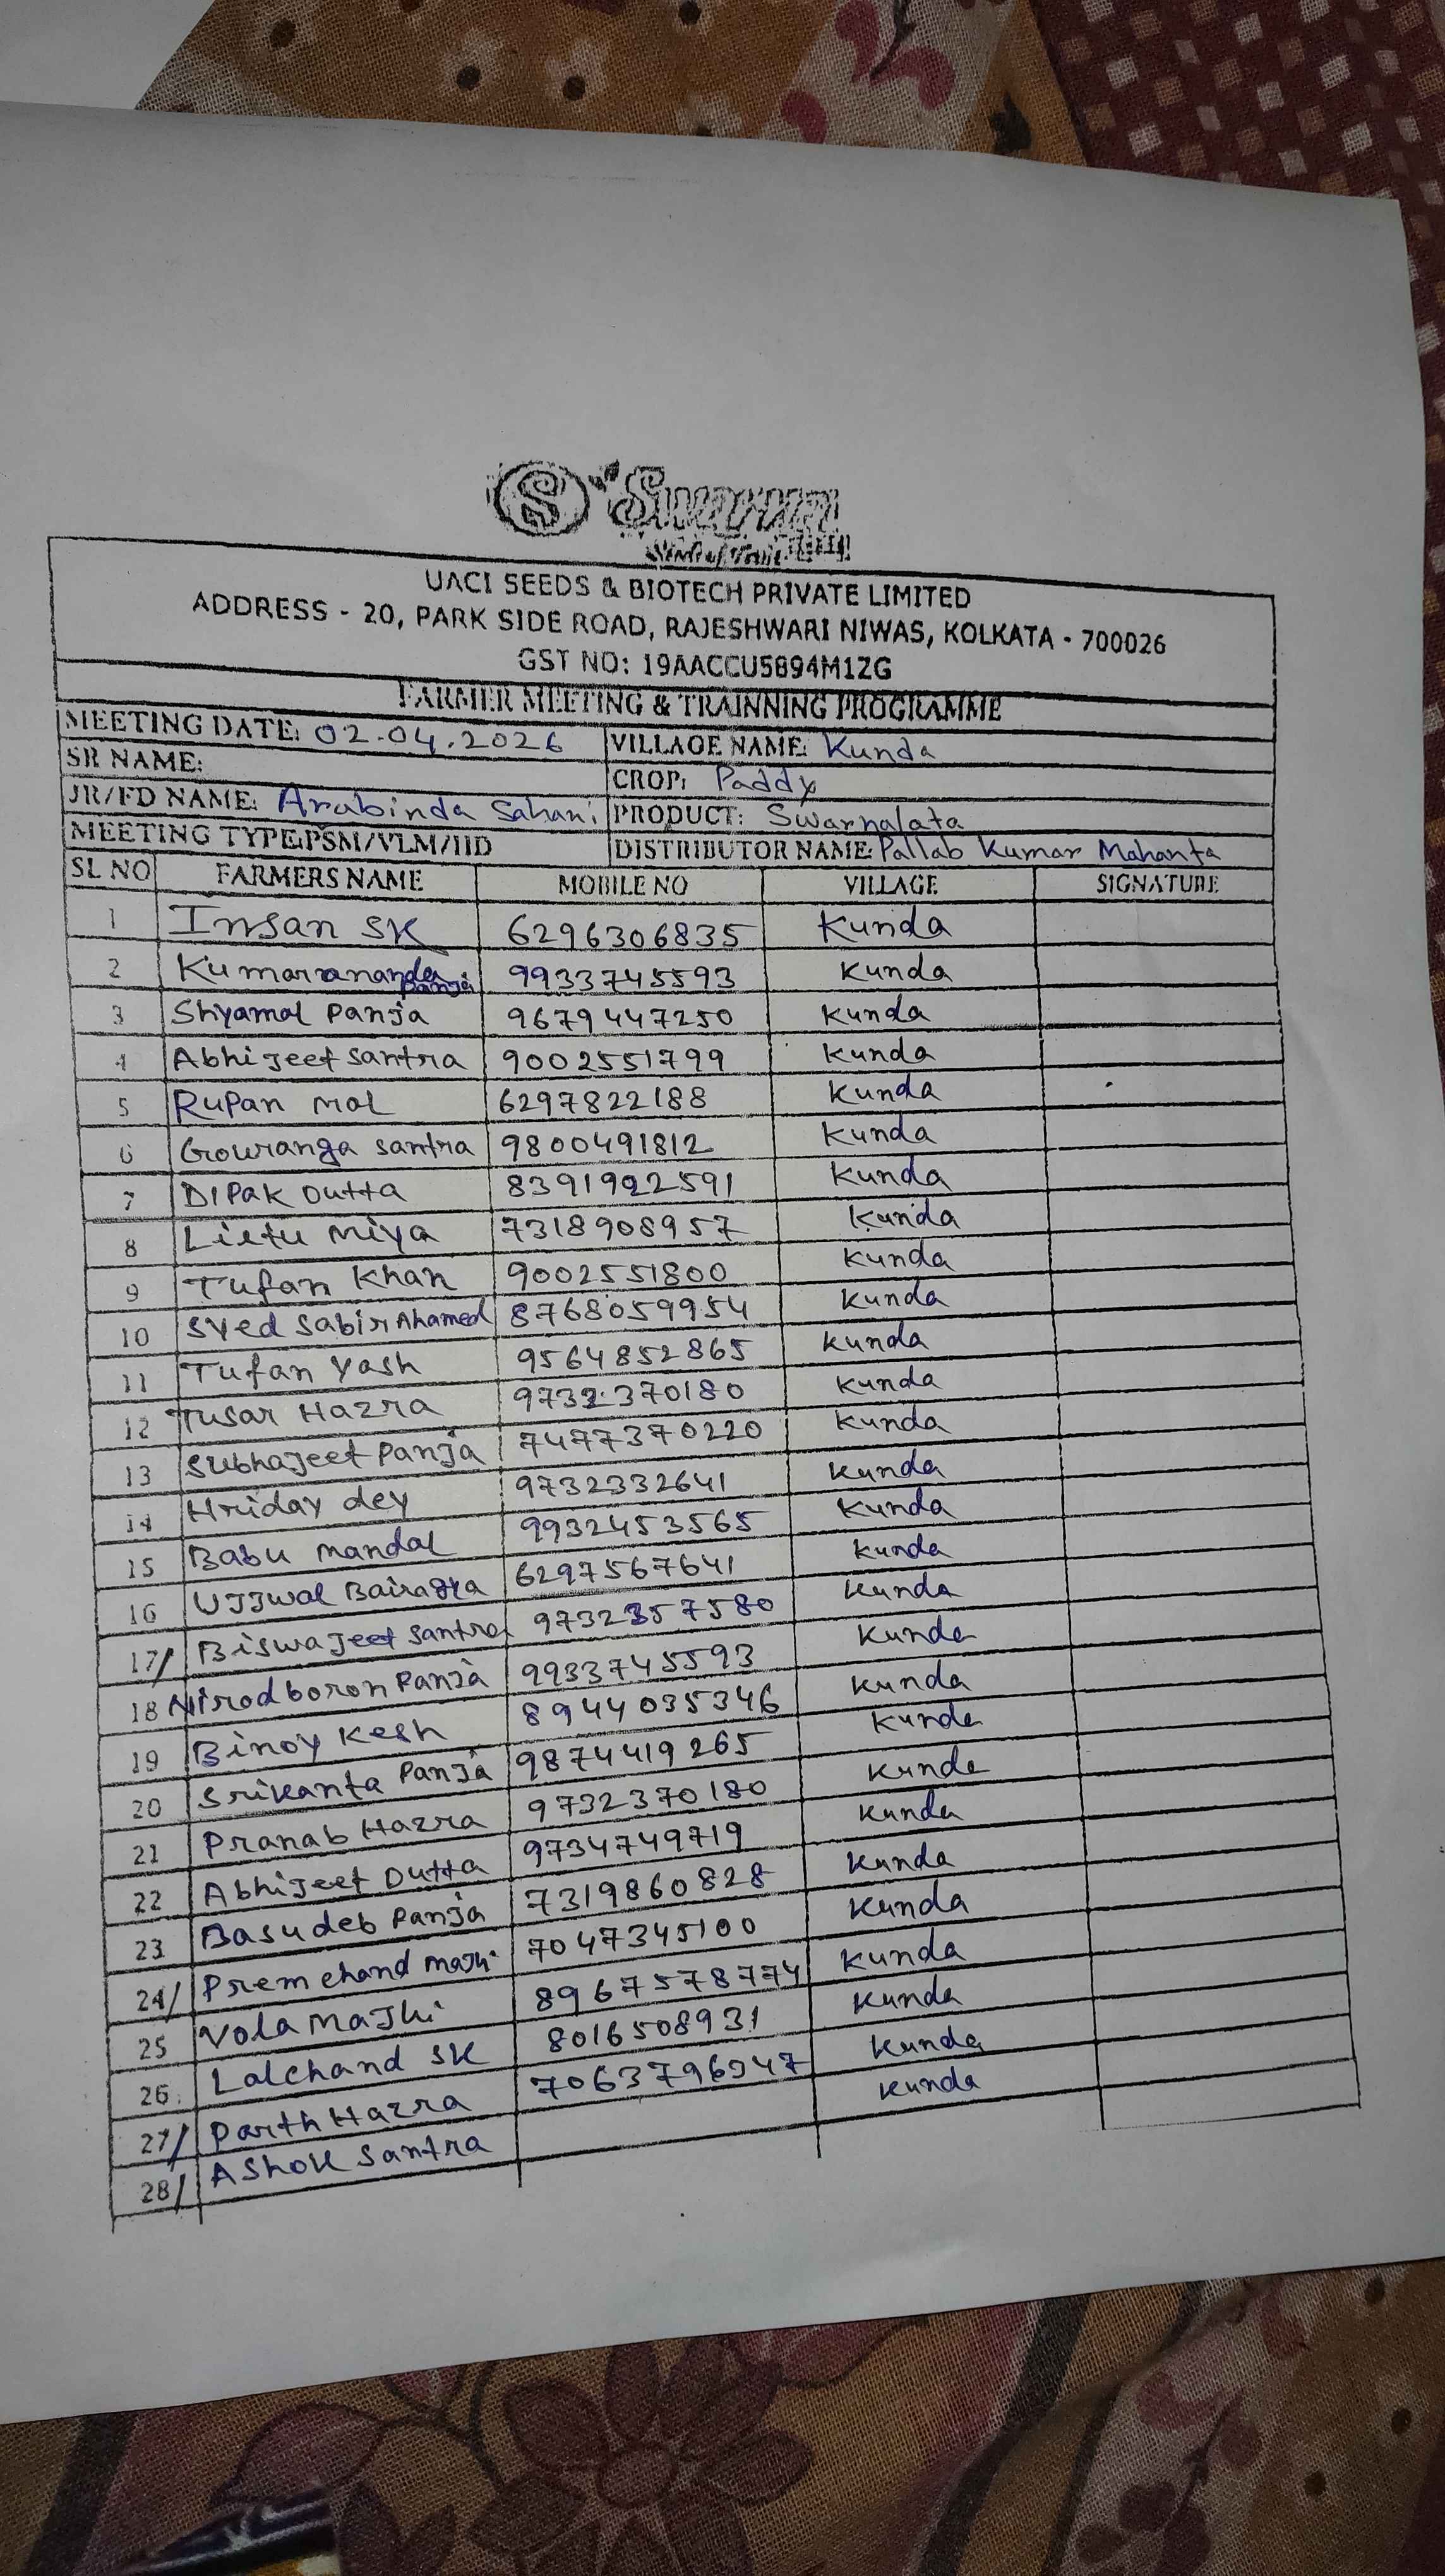 S Swarna
UACI SEEDS & BIOTECH PRIVATE LIMITED
ADDRESS - 20, PARK SIDE ROAD, RAJESHWARI NIWAS, KOLKATA - 700026
GST NO: 19AACCU5894M1ZG
FARMER MEETING & TRAINNING PROGRAMME
MEETING DATE: 02.04.2026 VILLAGE NAME: Kunda
SR NAME: CROP: Paddy
JR/FD NAME: Arabinda Sahani PRODUCT: Swarnalata
MEETING TYPE:PSM/VLM/IID DISTRIBUTOR NAME: Pallab Kumar Mahanta
SL NO FARMERS NAME MOBILE NO VILLAGE SIGNATURE
1 Insan SK 6296306835 Kunda
2 Kumarananda Panja 9933745593 Kunda
3 Shyamal Panja 9679447250 Kunda
4 Abhijeet Santra 9002551799 Kunda
5 Rupan Mal 6297822188 Kunda
6 Gouranga Santra 9800491812 Kunda
7 Dipak Dutta 8391922591 Kunda
8 Lietu Miya 7318908957 Kunda
9 Tufan Khan 9002551800 Kunda
10 Syed Sabir Ahamed 8768059954 Kunda
11 Tufan Yash 9564852865 Kunda
12 Tusar Hazra 9732370180 Kunda
13 Subhajeet Panja 7477370220 Kunda
14 Hriday dey 9732332641 Kunda
15 Babu Mandal 9932453565 Kunda
16 Ujjwal Bairagya 6297567641 Kunda
17/ Biswajeet Santra 9732357580 Kunda
18 Nirodboron Panja 9933745593 Kunda
19 Binoy Kesh 8944035346 Kunda
20 Srikanta Panja 9874419265 Kunda
21 Pranab Hazra 9732370180 Kunda
22 Abhijeet Dutta 9734749719 Kunda
23 Basudeb Panja 7319860828 Kunda
24/ Premchand Majhi 7047345100 Kunda
25 Vola Majhi 8967578774 Kunda
26 Lalchand SK 8016508931 Kunda
27/ Parth Hazra 7063796347 Kunda
28/ Ashok Santra Kunda